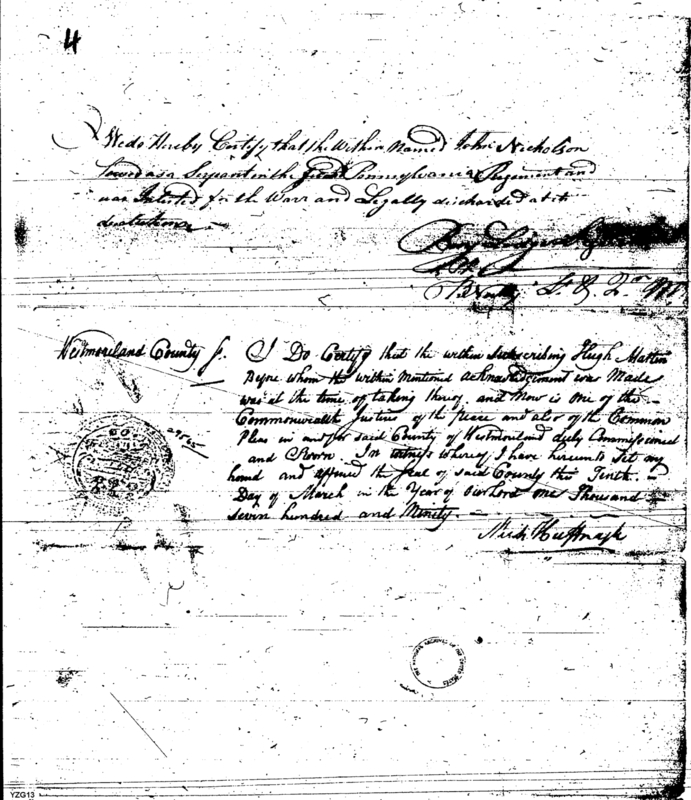 4
We do Hereby Certify that the within Named John Nicholson
served as a Serjeant in the Pennsylvania Regement and
was Inlisted for the Warr and Legally discharded at it
Westmoreland County Ss. I Do Certify that the within Subscribing Hugh Martin
Before whom the within Mentioned acknowledgement was Made
was at the time of taking thereof and Now is one of the
Commonwealth Justices of the peace and also of the Common
Pleas in and for said County of Westmorland duly Commissioned
and Sworn. In witness whereof I have hereunto Set my
hand and affixed the Seal of said County this Tenth
Day of March in the Year of our Lord one Thousand
seven hundred and Ninety.
Mich Huffnagle
THE NATIONAL ARCHIVES OF THE UNITED STATES
YZG13